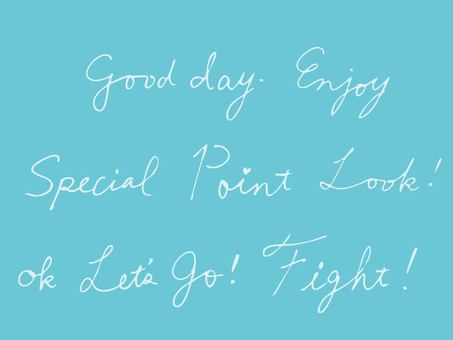 Good day. Enjoy
Special Point Look!
ok Let's Go! Fight!